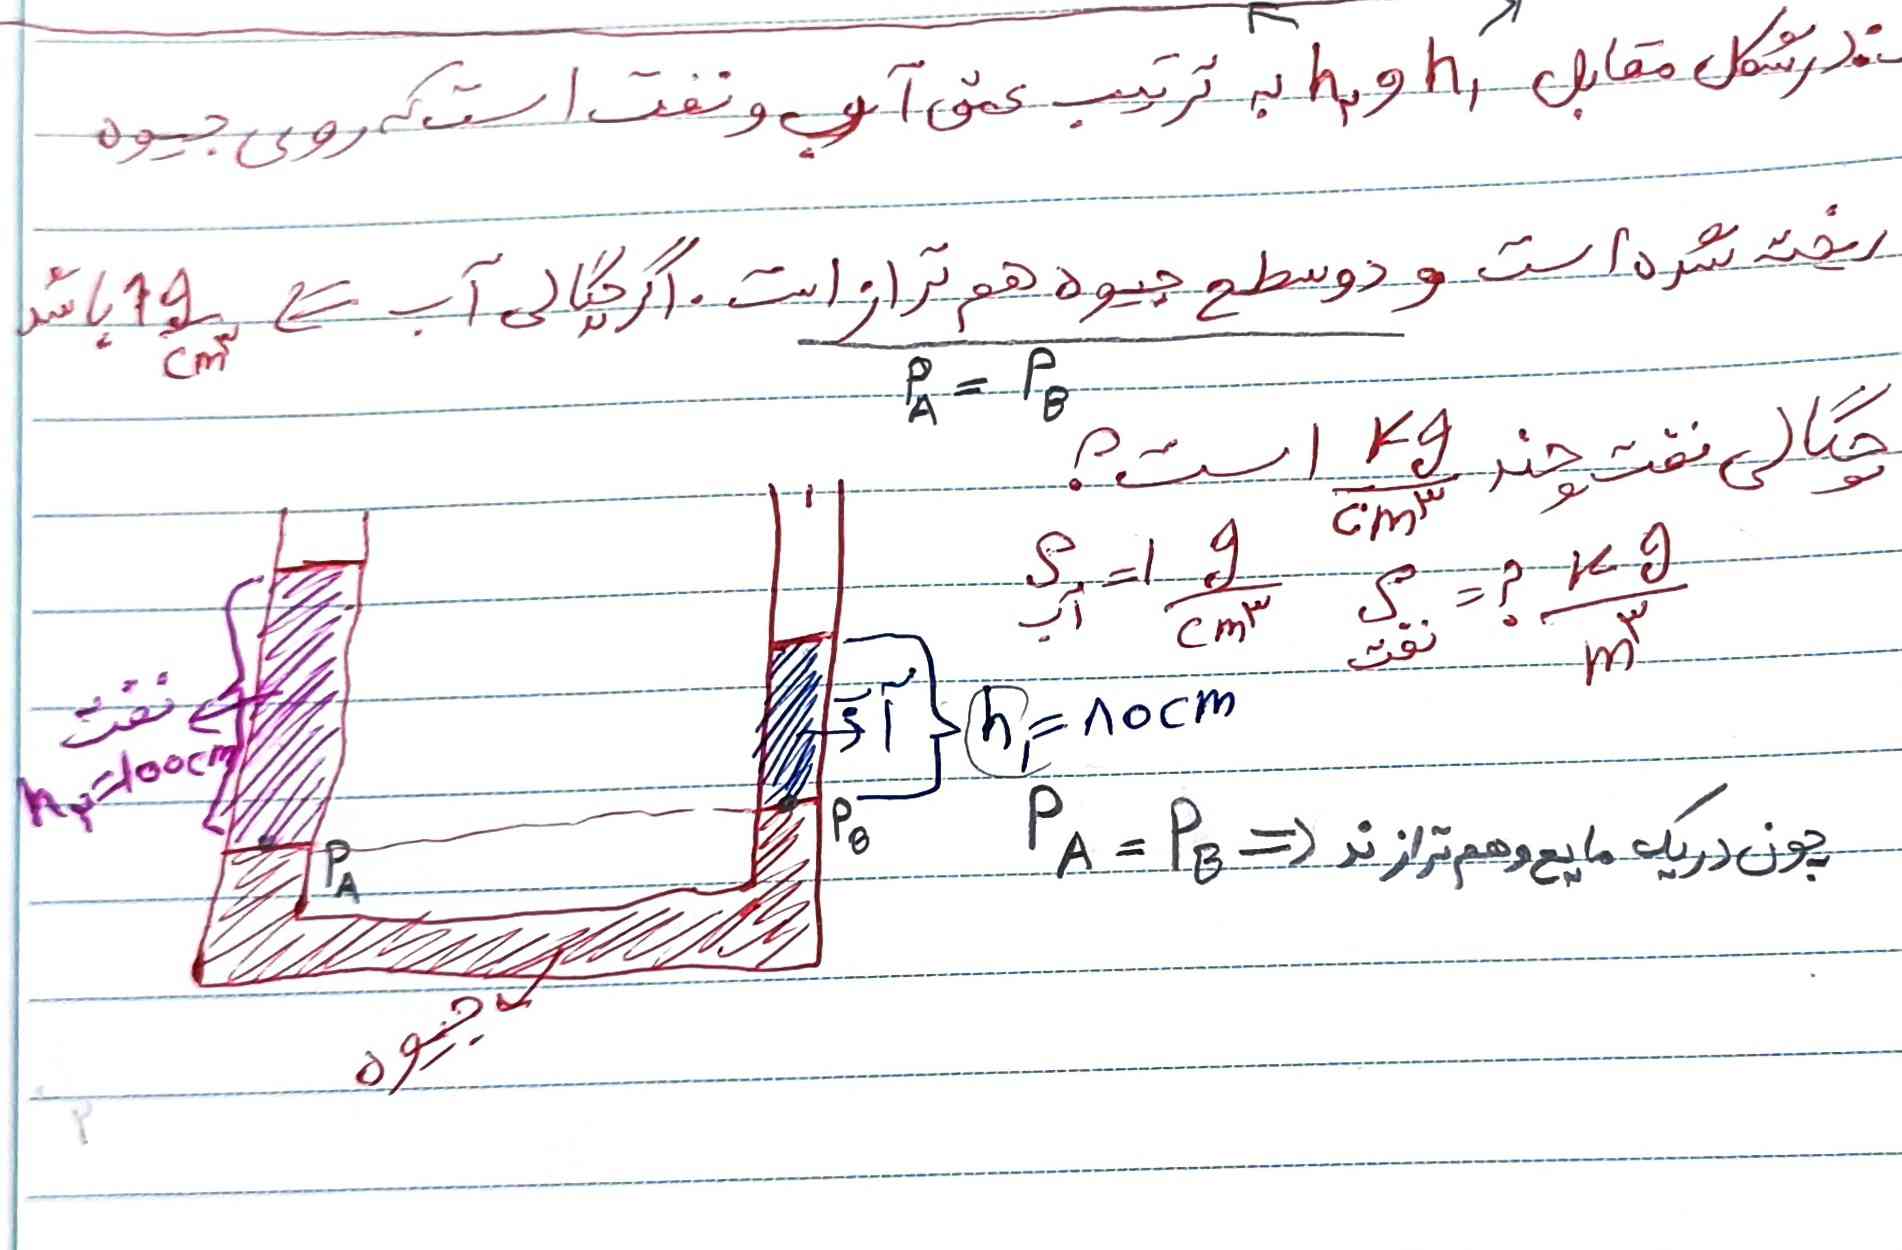 در شکل مقابل h₁ و h₂ به ترتیب عمق آب و نفت است که روی جیوه
ریخته شده است و دو سطح جیوه هم تراز است. اگر چگالی آب 1 g/cm³ باشد
P_A = P_B
چگالی نفت چند kg/cm³ است؟
ρ آب = ۱ g/cm³ ρ نفت = ? kg/m³
نفت
h₂=100cm
آب
h₁ = ۸۰cm
P_A
P_B
P_A = P_B ⇒ چون در یک مایع و هم ترازند
جیوه